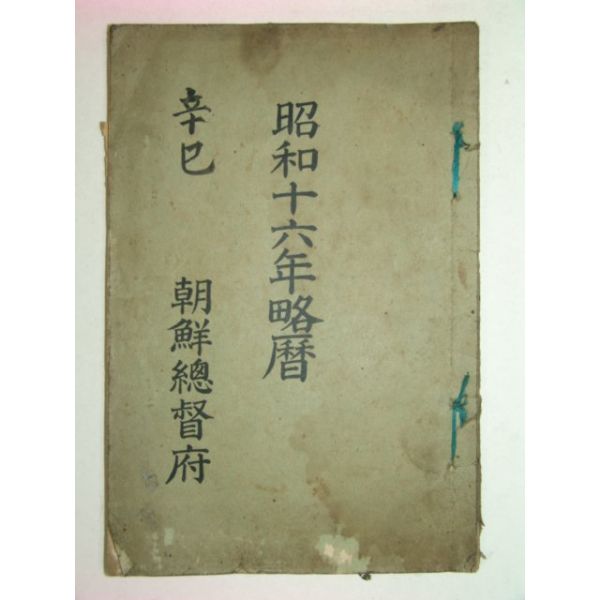 昭和十六年略曆
辛巳
朝鮮總督府